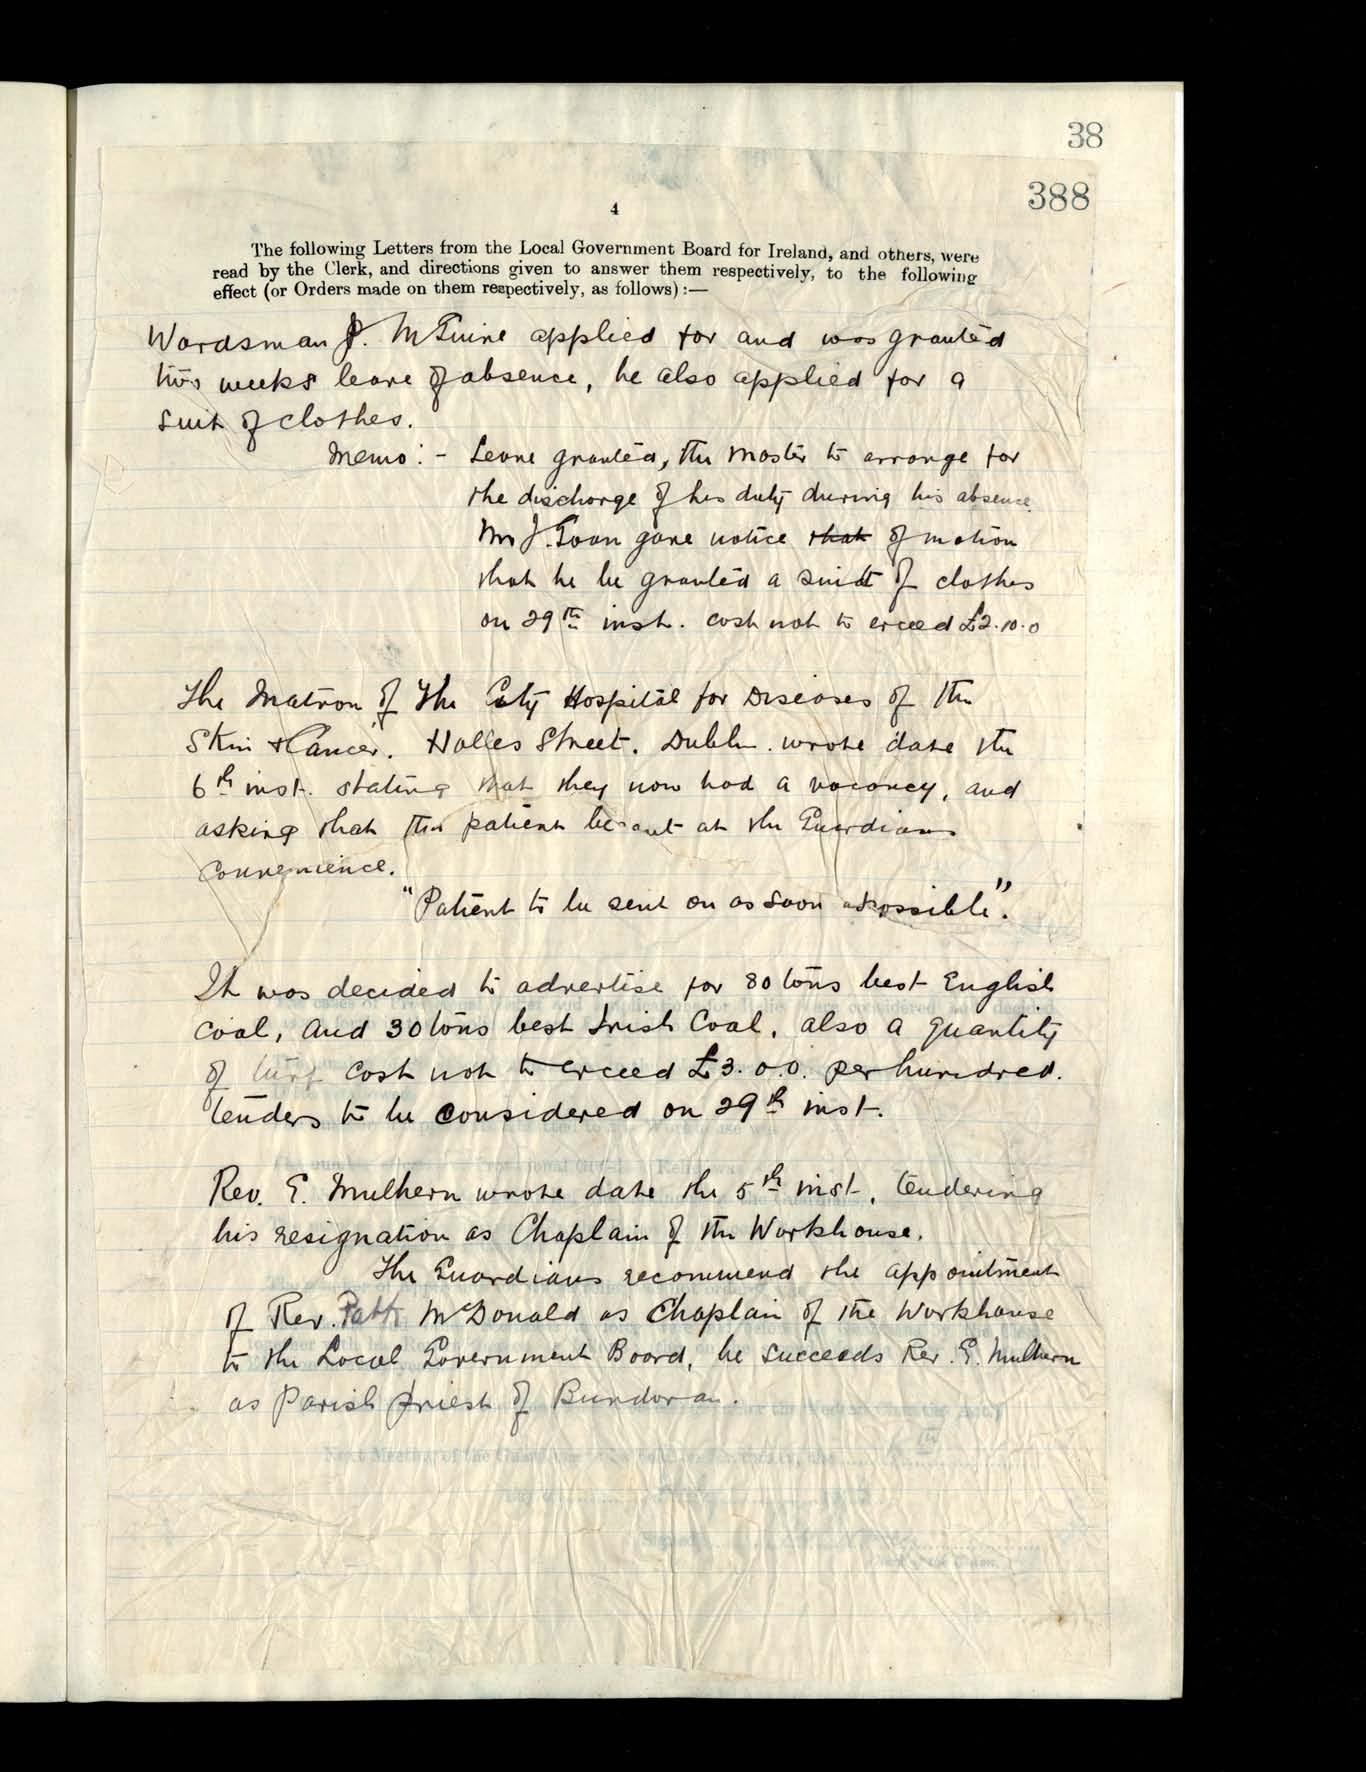 38
388
4
The following Letters from the Local Government Board for Ireland, and others, were
read by the Clerk, and directions given to answer them respectively, to the following
effect (or Orders made on them respectively, as follows) :—
Wardsman P. McGuire applied for and was granted
two weeks leave of absence, he also applied for a
suit of clothes.
Memo :- Leave granted, the Master to arrange for
the discharge of his duty during his absence.
Mr J. Goan gave notice that of motion
that he be granted a suit of clothes
on 29th inst. cost not to exceed £2.10.0
The Matron of The City Hospital for Diseases of the
Skin & Cancer. Holles Street. Dublin. wrote date the
6th inst. stating that they now had a vacancy, and
asking that the patient be sent at the Guardians
convenience.
"Patient to be sent on as soon as possible".
It was decided to advertise for 80 tons best English
Coal, and 30 tons best Irish Coal, also a quantity
of turf cost not to exceed £3.0.0. per hundred.
tenders to be considered on 29th inst.
Rev. E. Mulhern wrote date the 5th inst, tendering
his resignation as Chaplain of the Workhouse.
The Guardians recommend the appointment
of Rev. Patk McDonald as Chaplain of the Workhouse
to the Local Government Board, he succeeds Rev. E. Mulhern
as Parish priest of Bundoran.